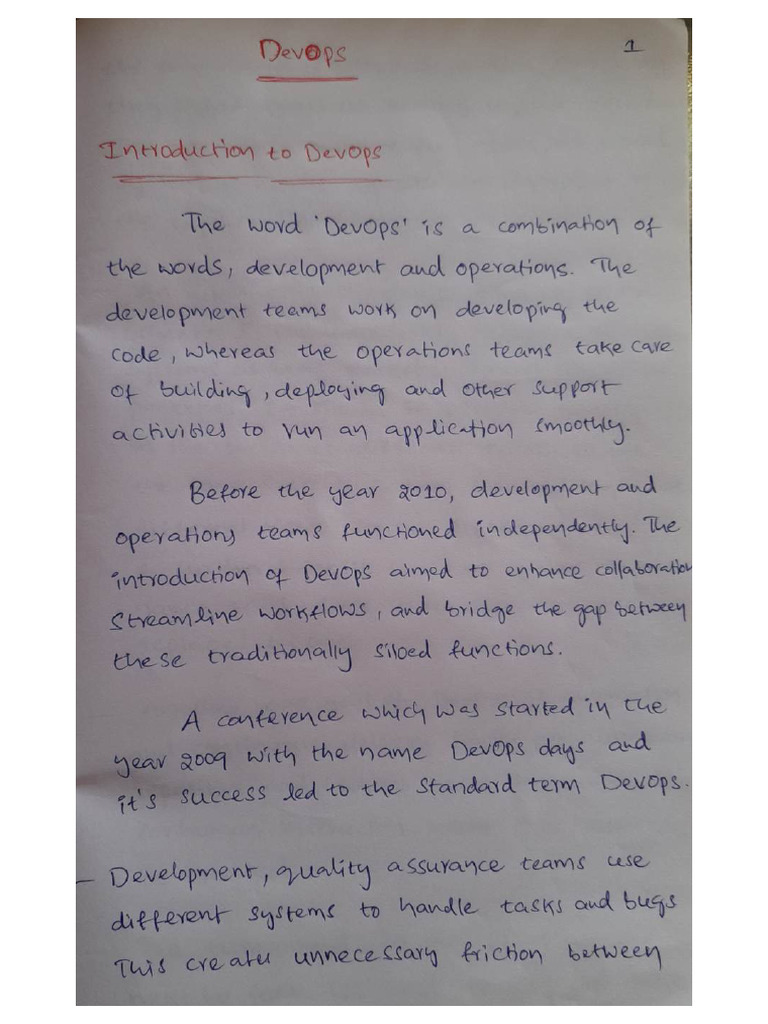 DevOps
1
Introduction to DevOps
The word 'DevOps' is a combination of
the words, development and operations. The
development teams work on developing the
code, whereas the operations teams take care
of building, deploying and other support
activities to run an application smoothly.
Before the year 2010, development and
operations teams functioned independently. The
introduction of DevOps aimed to enhance collaboration
streamline workflows, and bridge the gap between
these traditionally siloed functions.
A conference which was started in the
year 2009 with the name DevOps days and
it's success led to the standard term DevOps.
- Development, quality assurance teams use
different systems to handle tasks and bugs
This creates unnecessary friction between